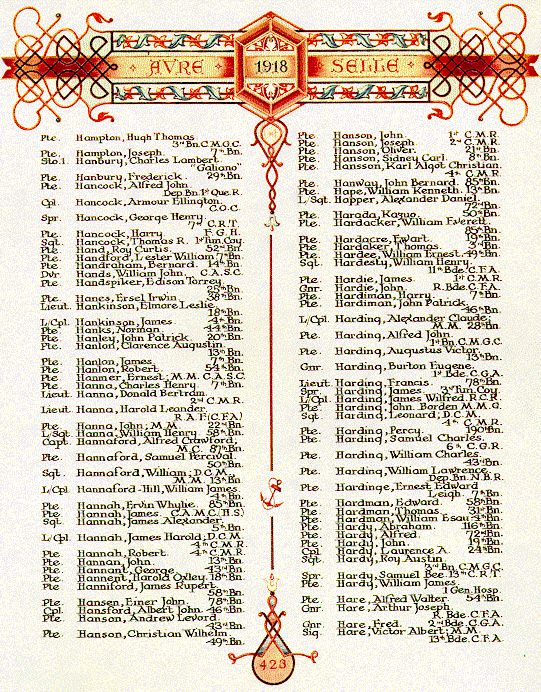 AVRE 1918 SELLE
Pte. Hampton, Hugh Thomas
3rd Bn. C.M.G.C.
Pte. Hampton, Joseph. 7th Bn.
Sto.1. Hanbury, Charles Lambert
"Galiano"
Pte. Hanbury, Frederick. 29th Bn.
Pte. Hancock, Alfred John.
Dep. Bn. 1st Que. R.
Cpl. Hancock, Armour Ellington.
C.O.C.
Spr. Hancock, George Henry.
7th C.R.T.
Pte. Hancock, Harry. F.G.H.
Sgt. Hancock, Thomas R. 1st Tun. Coy.
Pte. Hand, Roy Curtis. 52nd Bn.
Pte. Handford, Lester William. 7th Bn.
Pte. Handraham, Bernard. 14th Bn.
Dvr. Hands, William John. C.A.S.C.
Pte. Handspiker, Edison Torrey.
25th Bn.
Pte. Hanes, Ersel Irwin. 38th Bn.
Lieut. Hankinson, Elmore Leslie.
18th Bn.
L/Cpl. Hankinson, James. 4th Bn.
Pte. Hanks, Norman. 44th Bn.
Pte. Hanley, John Patrick. 20th Bn.
Pte. Hanlon, Clarence Augustin.
13th Bn.
Pte. Hanlon, James. 7th Bn.
Pte. Hanlon, Robert. 54th Bn.
Pte. Hanmer, Ernest; M.M. C.A.S.C.
Pte. Hanna, Charles Henry. 7th Bn.
Lieut. Hanna, Donald Bertram.
2nd C.M.R.
Lieut. Hanna, Harold Leander.
R.A.F. (C.F.A)
Pte. Hanna, John; M.M. 22nd Bn.
L/Sgt. Hanna, William Henry. 58th Bn.
Capt. Hannaford, Alfred Crawford;
M.C. 87th Bn.
Pte. Hannaford, Samuel Percival.
50th Bn.
Sgt. Hannaford, William; D.C.M.
M.M. 13th Bn.
L/Cpl. Hannaford-Hill, William James
4th Bn.
Pte. Hannah, Ervin Whylie. 85th Bn.
Pte. Hannah, James. C.A.M.C. (H.S)
Sgt. Hannah, James Alexander.
5th Bn.
L/Cpl. Hannah, James Harold; D.C.M.
4th C.M.R.
Pte. Hannah, Robert. 4th C.M.R.
Pte. Hannan, John. 13th Bn.
Pte. Hannant, George. 43rd Bn.
Pte. Hannent, Harold Oxley. 18th Bn.
Pte. Hanniford, James Rupert.
58th Bn.
Pte. Hansen, Einer John. 78th Bn.
Cpl. Hansford, Albert John. 46th Bn.
Pte. Hanson, Andrew Levord.
43rd Bn.
Pte. Hanson, Christian Wilhelm.
49th Bn.
Pte. Hanson, John. 1st C.M.R.
Pte. Hanson, Joseph. 2nd C.M.R.
Pte. Hanson, Oliver. 21st Bn.
Pte. Hanson, Sidney Carl. 8th Bn.
Pte. Hansson, Karl Algot Christian.
4th C.M.R.
Pte. Hanway, John Bernard. 85th Bn.
Pte. Hape, William Kenneth. 13th Bn.
L/Sgt. Hopper, Alexander Daniel.
72nd Bn.
Pte. Harada, Kazuo. 50th Bn.
Pte. Hardacker, William Everett.
85th Bn.
Pte. Hardacre, Ewart. 19th Bn.
Pte. Hardaker, Thomas. 3rd Bn.
Pte. Hardee, William Ernest. 49th Bn.
Sgt. Hardesty, William Henry.
11th Bde. C.F.A.
Pte. Hardie, James. 1st C.M.R.
Gnr. Hardie, John. R. Bde. C.F.A.
Pte. Hardiman, Harry. 7th Bn.
Pte. Hardiman, John Patrick.
46th Bn.
L/Cpl. Harding, Alexander Claude;
M.M. 28th Bn.
Pte. Harding, Alfred John
1st Bn. C.M.G.C.
Pte. Harding, Augustus Victor.
13th Bn.
Gnr. Harding, Burton Eugene.
1st Bde. C.G.A.
Lieut. Harding, Francis. 78th Bn.
Spr. Harding, James. 3rd Tun. Coy.
L/Cpl. Harding, James Wilfred. R.C.R.
Pte. Harding, John Borden. M.M.G.
Sgt. Harding, Leonard; D.C.M.
4th C.M.R.
Pte. Harding, Percy. 190th Bn.
Pte. Harding, Samuel Charles.
6th C.G.R.
Pte. Harding, William Charles.
43rd Bn.
Pte. Harding, William Lawrence.
Dep. Bn. N.B.R.
Pte. Hardinge, Ernest Edward
Leigh. 7th Bn.
Pte. Hardman, Edward. 58th Bn.
Pte. Hardman, Thomas. 31st Bn.
Pte. Hardman, William Esau. 4th Bn.
Pte. Hardy, Abraham. 116th Bn.
Pte. Hardy, Alfred. 72nd Bn.
Pte. Hardy, John. 19th Bn.
Cpl. Hardy, Laurence A. 24th Bn.
Sgt. Hardy, Roy Austin
3rd Bn. C.M.G.C.
Spr. Hardy, Samuel Bee. 13th C.R.T.
Pte. Hardy, William James.
1 Gen. Hosp.
Pte. Hare, Alfred Walter. 54th Bn.
Gnr. Hare, Arthur Joseph.
R. Bde. C.F.A.
Gnr. Hare, Fred. 2nd Bde. C.G.A.
Sig. Hare, Victor Albert; M.M.
13th Bde. C.F.A.
423